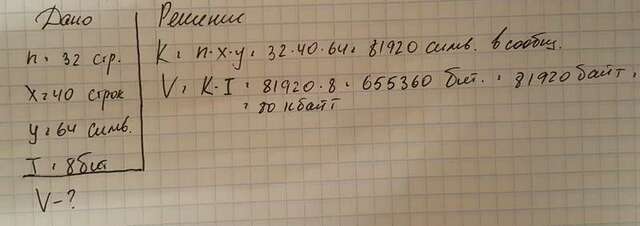 Дано
n = 32 стр.
x = 40 строк
y = 64 симв.
I = 8 бит
V - ?
Решение
K = n·x·y = 32·40·64 = 81920 симв. в сообщ.
V = K·I = 81920·8 = 655360 бит. = 81920 байт =
= 80 кбайт